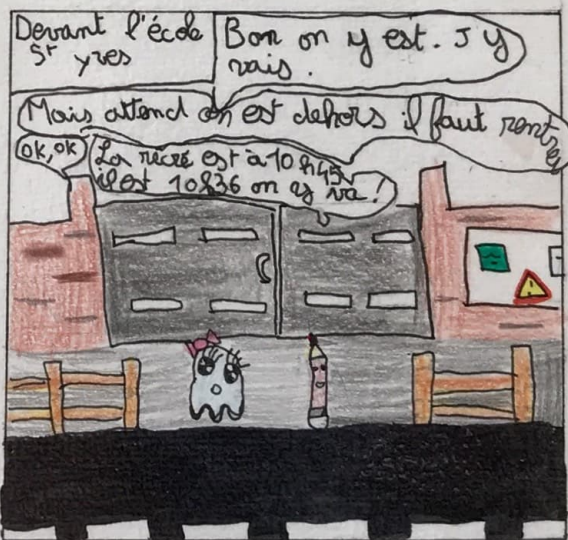 Devant l'école
St yres
Bon on y est. J y
vais.
Mais attend on est dehors il faut rentre
OK, OK
La recré est à 10h45
il est 10h36 on y va!